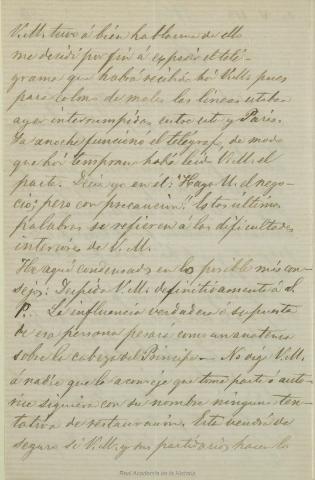 V.M. tuvo á bién hablarme de ello
me decidí por fin á expedir el telé-
grama que habrá recibido hoy V.M. pues
para colmo de males las líneas estaban
ayer interrumpidas entre esta y París.
Ya anoche funcionó el telégrafo, de modo
que hoy temprano habrá leido V.M. el
parte. Decía yo en él: "Haga U. el nego-
cio; pero con precaución". Estas últimas
palabras se refieren a las dificultades
interiores de V.M.
He aquí condensado en lo posible mis con-
sejos: Despida V.M. definitivamente á D.
P. La influencia verdadera ó supuesta
de esa persona pesará como un anatema
sobre la cabeza del Príncipe. No diga V.M.
á nadie que le aconseja que tome parte ó auto-
rice siquiera con su nombre ninguna ten-
tativa de restauración. Esta vendrá de
seguro si V.M. y sus partidarios hacen lo
Real Academia de la Historia